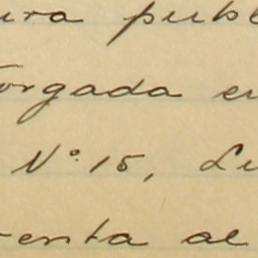 ura publ
orgada en
N° 15, Lu
venta al